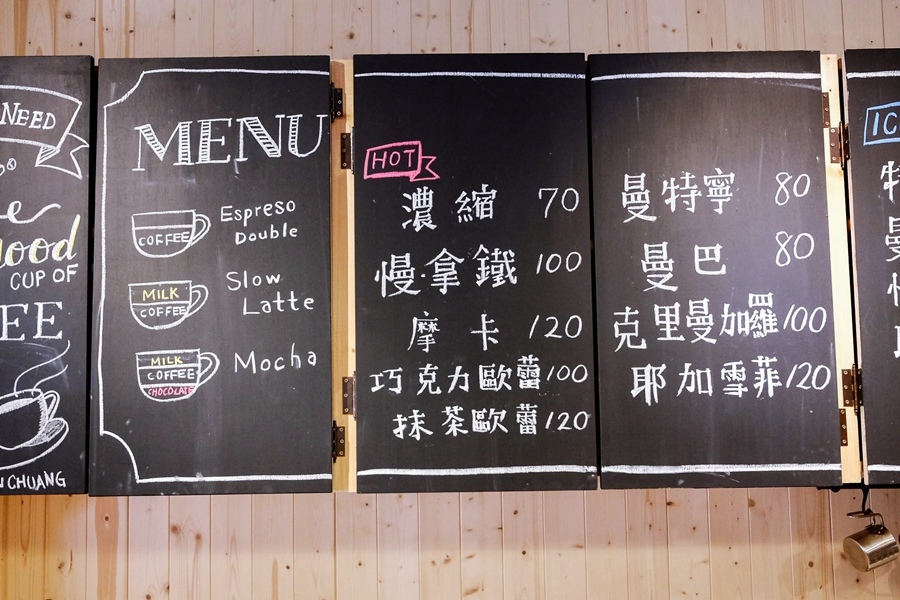 NEED
CUP OF
EE
CHUANG
MENU
COFFEE
Espreso
Double
MILK
COFFEE
Slow
Latte
MILK
COFFEE
CHOCOLATE
Mocha
HOT
濃縮 70
慢·拿鐵 100
摩卡 120
巧克力歐蕾 100
抹茶歐蕾 120
曼特寧 80
曼巴 80
克里曼加羅 100
耶加雪菲 120
IC